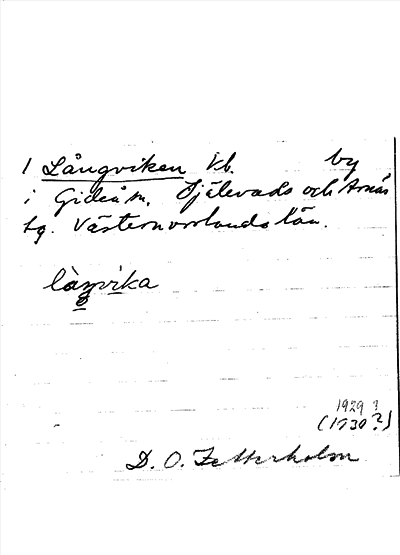 1 Långviken kb. by
i Gideå sn, Själevads och Arnäs
tg. Västernorrlands län.
làŋvika
1929?
(1930?)
D. O. Zetterholm